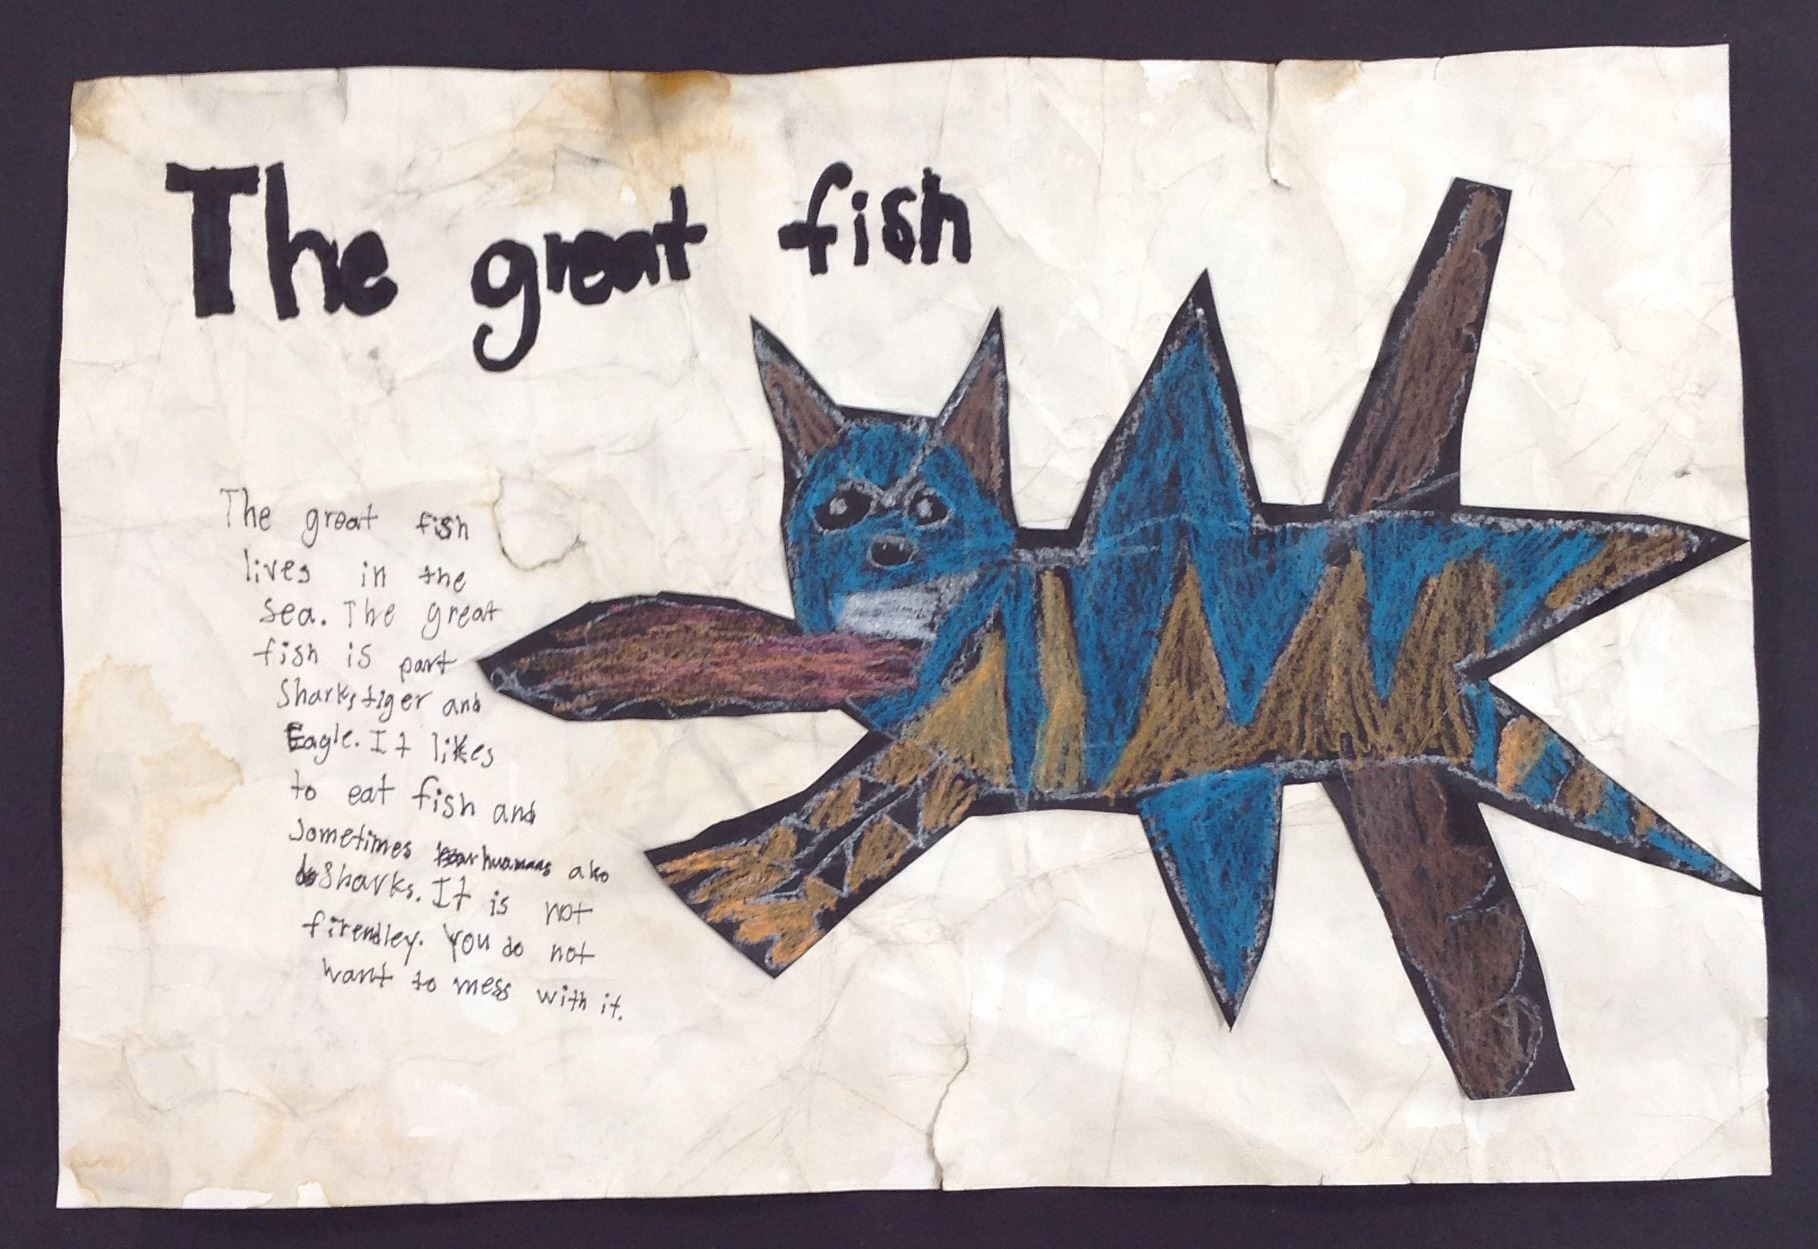 The great fish
The great fish
lives in the
sea. The great
fish is part
Shark, tiger and
Eagle. It likes
to eat fish and
sometimes huamans also
Sharks. It is not
firendley. You do not
want to mess with it.